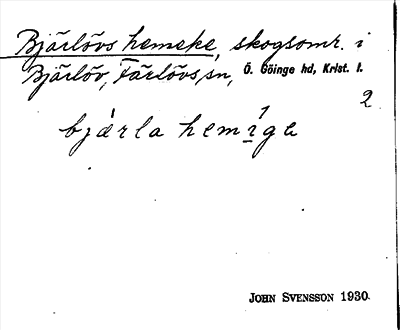 Bjärlövs hemeke, skogsomr. i
Bjärlöv, Färlövs sn, Ö. Göinge hd, Krist. l.
2
bjärla hemige
JOHN SVENSSON 1930.